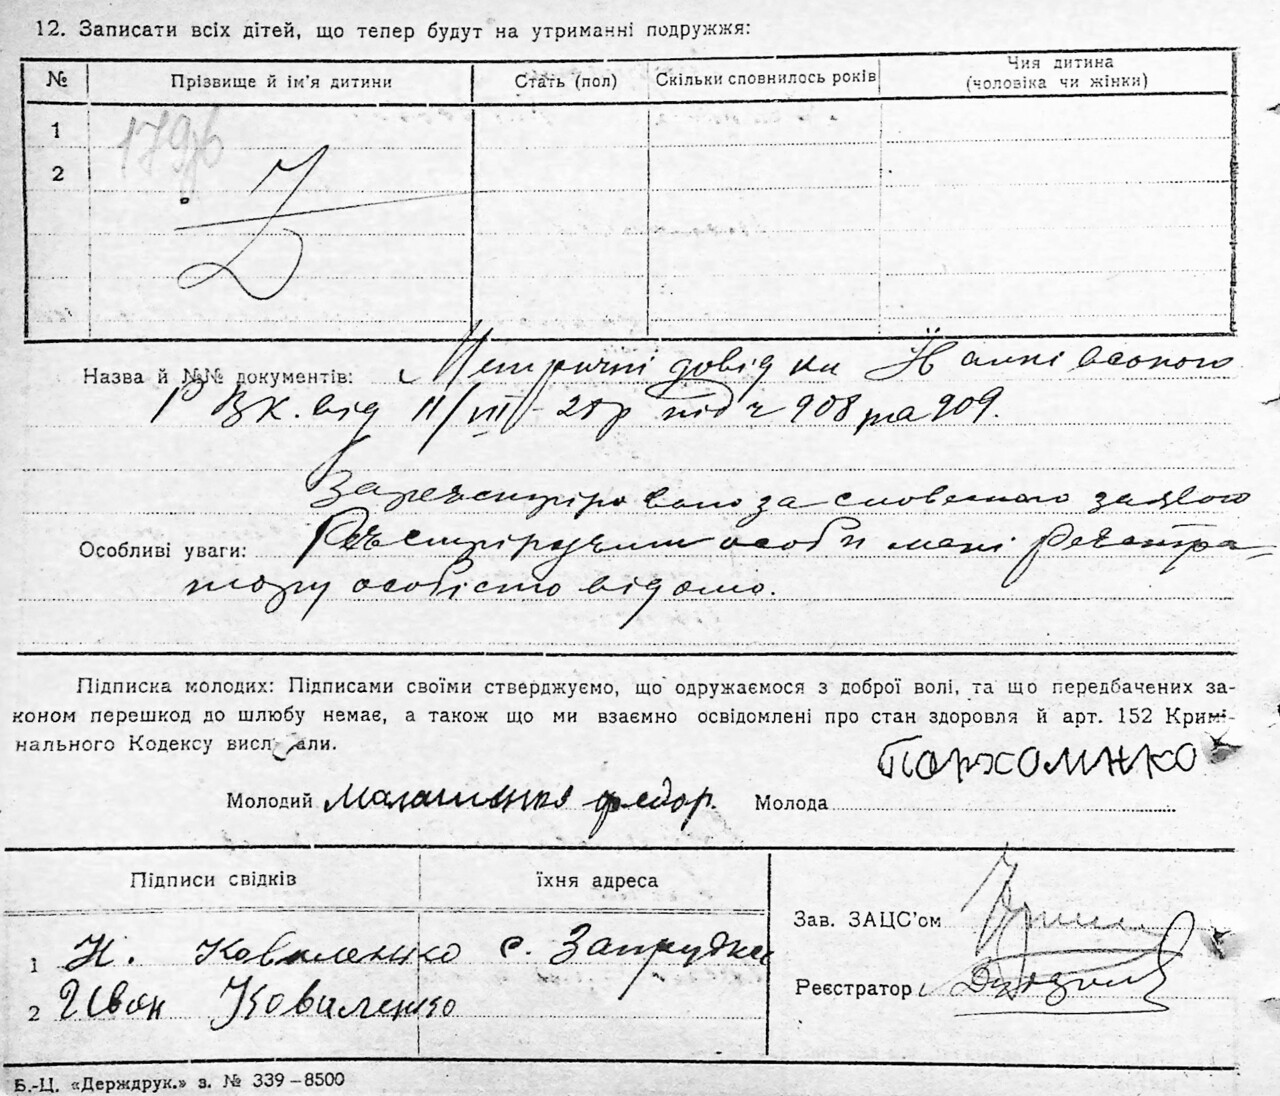 12. Записати всіх дітей, що тепер будут на утриманні подружжя:
№ Прізвище й ім'я дитини Стать (пол) Скільки сповнилось років Чия дитина (чоловіка чи жінки)
1
2
Назва й №№ документів: Метричні довідки
від 11/VIII-28р під ч 908 та 909.
Зареєстріровано за словесною заявою
Особливі уваги: особи мені Реєстра-
тору особісто відомо.
Підписка молодих: Підписами своїми стверджуємо, що одружаємося з доброї волі, та що передбачених за-
коном перешкод до шлюбу немає, а також що ми взаємно освідомлені про стан здоровля й арт. 152 Кримі-
нального Кодексу вислухали.
Пархоменко
Молодий Малашенко Федор. Молода
Підписи свідків їхня адреса
Зав. ЗАЦС'ом
1 Н. Коваленко с. Запрудка
Реєстратор
2 Иван Коваленко
Б.-Ц. «Держдрук.» з. № 339–8500